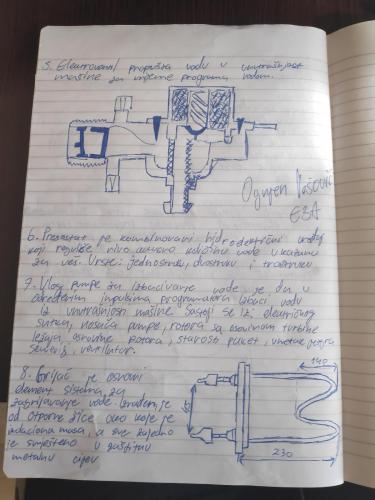 5. Elektroventil propušta vodu u unutrašnjost
mašine za vrijeme programa vodom.
Ognjen
E3A
6. Presostat je kombinovani hidroelektrični uređaj
koji reguliše nivo odnosno količinu vode u kazanu
za veš. Vrste: jednostruki, dvostruki i trostruki
7. Ulog pumpe za izbacivanje vode je da u
određenim impulsima programatora izbaci vodu
iz unutrašnjosti mašine. Sastoji se iz: električnog
statora, nosača pumpe, rotora sa osovinom turbine
ležaja, osovine rotora,
ventilator.
8. Grijač je osnovni
element sistema za
zagrijavanje vode. Izrađen je
od otporne žice oko koje je
izolaciona masa, a sve zajedno
je smješteno u zaštitnu
metalnu cijev
140
230